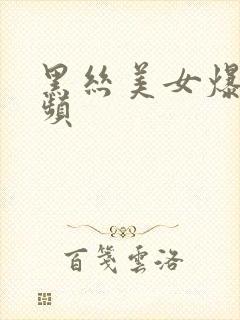 黑絲美女爆
頻
百箋雲洛